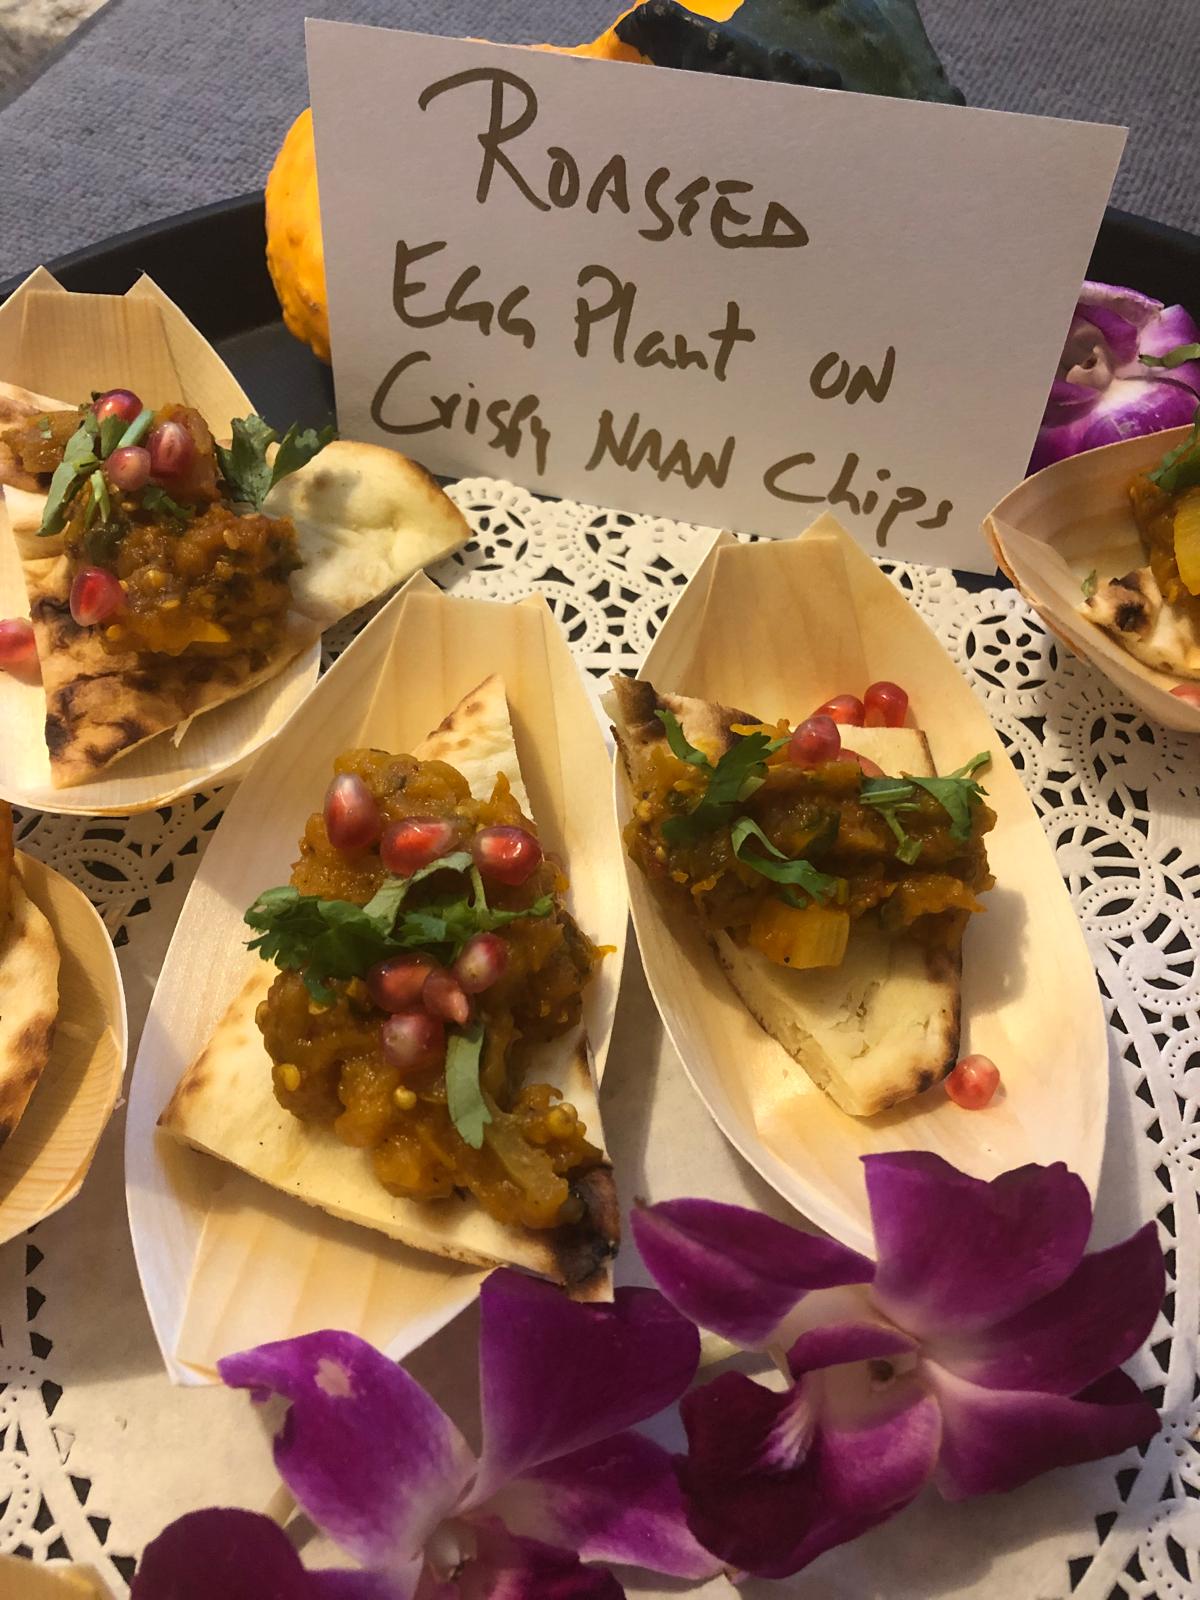 ROASTED
EGG Plant ON
Crispy NAAN Chips